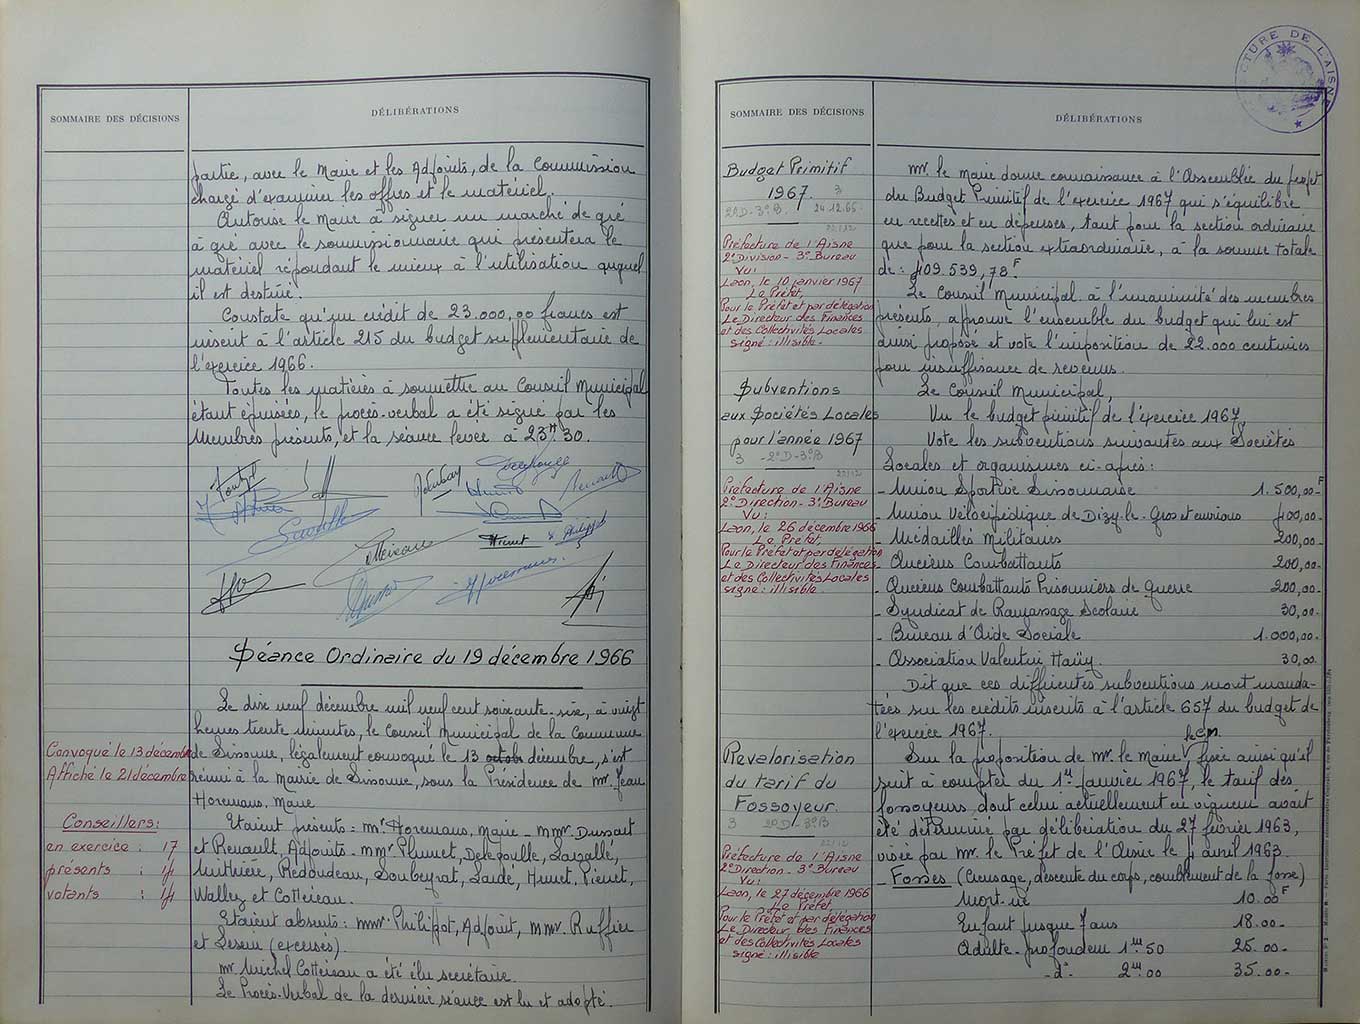 SOMMAIRE DES DÉCISIONS
DÉLIBÉRATIONS
partie, avec le Maire et les Adjoints, de la Commission
chargé d'examiner les offres et le matériel.
Autorise le Maire à signer un marché de gré
à gré avec le soumissionnaire qui présentera le
matériel répondant le mieux à l'utilisation auquel
il est destiné.
Constate qu'un crédit de 23.000,00 francs est
inscrit à l'article 215 du budget supplémentaire de
l'exercice 1966.
Toutes les matières à soumettre au Conseil Municipal
étant épuisées, le procès-verbal a été signé par les
Membres présents, et la séance levée à 23H 30.
Séance Ordinaire du 19 décembre 1966
Le dix neuf décembre mil neuf cent soixante-six, à vingt
heures trente minutes, le Conseil Municipal de la Commune
Convoqué le 13 décembre
de Sissonne, légalement convoqué le 13 octob décembre, s'est
Affiché le 21 décembre
réuni à la Mairie de Sissonne, sous la Présidence de Mr. Jean
Horemans, Maire
Conseillers:
en exercice : 17
présents : 14
votants : 14
Etaient présents : Mr Horemans, Maire - MMr. Dussart
et Renault, Adjoints - MMr Plumet, Delegoulle, Lavallé,
Mithière, Redoudeau, Soubeyrat, Laidé, Hunet, Piénet,
Walley et Cottereau.
Etaient absents : MMr. Philippot, Adjoint, MMr. Ruffier
et Leseur (excusés).
Mr Michel Cottereau a été élu secrétaire.
Le Procès-Verbal de la dernière séance est lu et adopté.
CTURE DE L'AISNE
SOMMAIRE DES DÉCISIONS
DÉLIBÉRATIONS
Budget Primitif
1967.
3
2°D-3°B. 24.12.66
22/12
Préfecture de l'Aisne
2° Division - 3° Bureau
Vu:
Laon, le 10 janvier 1967
Le Préfet,
Pour le Préfet et par délégation
Le Directeur des Finances
et des Collectivités Locales
signé : illisible.
Mr. le Maire donne connaissance à l'Assemblée du projet
du Budget Primitif de l'exercice 1967 qui s'équilibre
en recettes et en dépenses, tant pour la section ordinaire
que pour la section extraordinaire, à la somme totale
de : 409.539,78F
Le Conseil Municipal à l'unanimité des membres
présents, aprouve l'ensemble du budget qui lui est
ainsi proposé et vote l'imposition de 22.000 centimes
pour insuffisance de revenus.
Subventions
aux Sociétés Locales
pour l'année 1967
3 - 2°D-3°B
22/12
Préfecture de l'Aisne
2° Direction - 3° Bureau
Vu:
Laon, le 26 décembre 1966
Le Préfet,
Pour le Préfet et par délégation
Le Directeur des Finances
et des Collectivités Locales
signé : illisible.
Le Conseil Municipal,
Vu le budget primitif de l'exercice 1967,
Vote les subventions suivantes aux Sociétés
Locales et organismes ci-après :
- Union Sportive Sissonnaise 1.500,00-F
- Union Vélocipédique de Dizy-le-Gros et environs 400,00-
- Médaillés Militaires 200,00-
- Anciens Combattants 200,00-
- Anciens Combattants Prisonniers de Guerre 200,00-
- Syndicat de Ramassage Scolaire 30,00-
- Bureau d'Aide Sociale 1.000,00-
- Association Valentin Haüy. 30,00
Dit que ces différentes subventions seront manda-
tées sur les crédits inscrits à l'article 657 du budget de
l'exercice 1967.
Revalorisation
du tarif du
Fossoyeur.
3 2°D-3°B
22/12
Préfecture de l'Aisne
2° Direction - 3° Bureau
Vu:
Laon, le 27 décembre 1966
Le Préfet,
Pour le Préfet et par délégation
Le Directeur, des Finances
et des Collectivités Locales
signé : illisible
le C.M.
Sur la proposition de Mr. le Maire, fixe ainsi qu'il
suit à compter du 1er janvier 1967, le tarif des
fossoyeurs, dont celui actuellement en vigueur avait
été déterminé par délibération du 27 février 1963,
visée par Mr. le Préfet de l'Aisne le 4 avril 1963.
- Fosses (Creusage, descente du corps, comblement de la fosse)
Mort-né 10.00F
Enfant jusque 7 ans 18.00-
Adulte - profondeur 1m 50 25.00-
- d° - 2m 00 35.00-